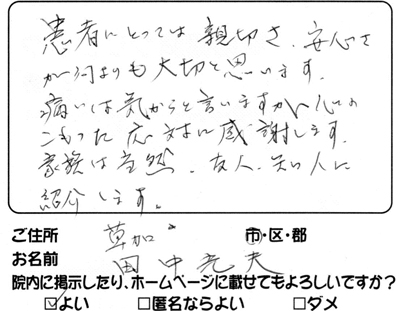 患者にとっては親切さ、安心さ
が何よりも大切と思います。
痛いは気からと言いますが、心の
こもった応対に感謝します。
家族は当然、友人、知人に
紹介します。
ご住所 草加 市・区・郡
お名前 田中光夫
院内に掲示したり、ホームページに載せてもよろしいですか?
☑よい □匿名ならよい □ダメ